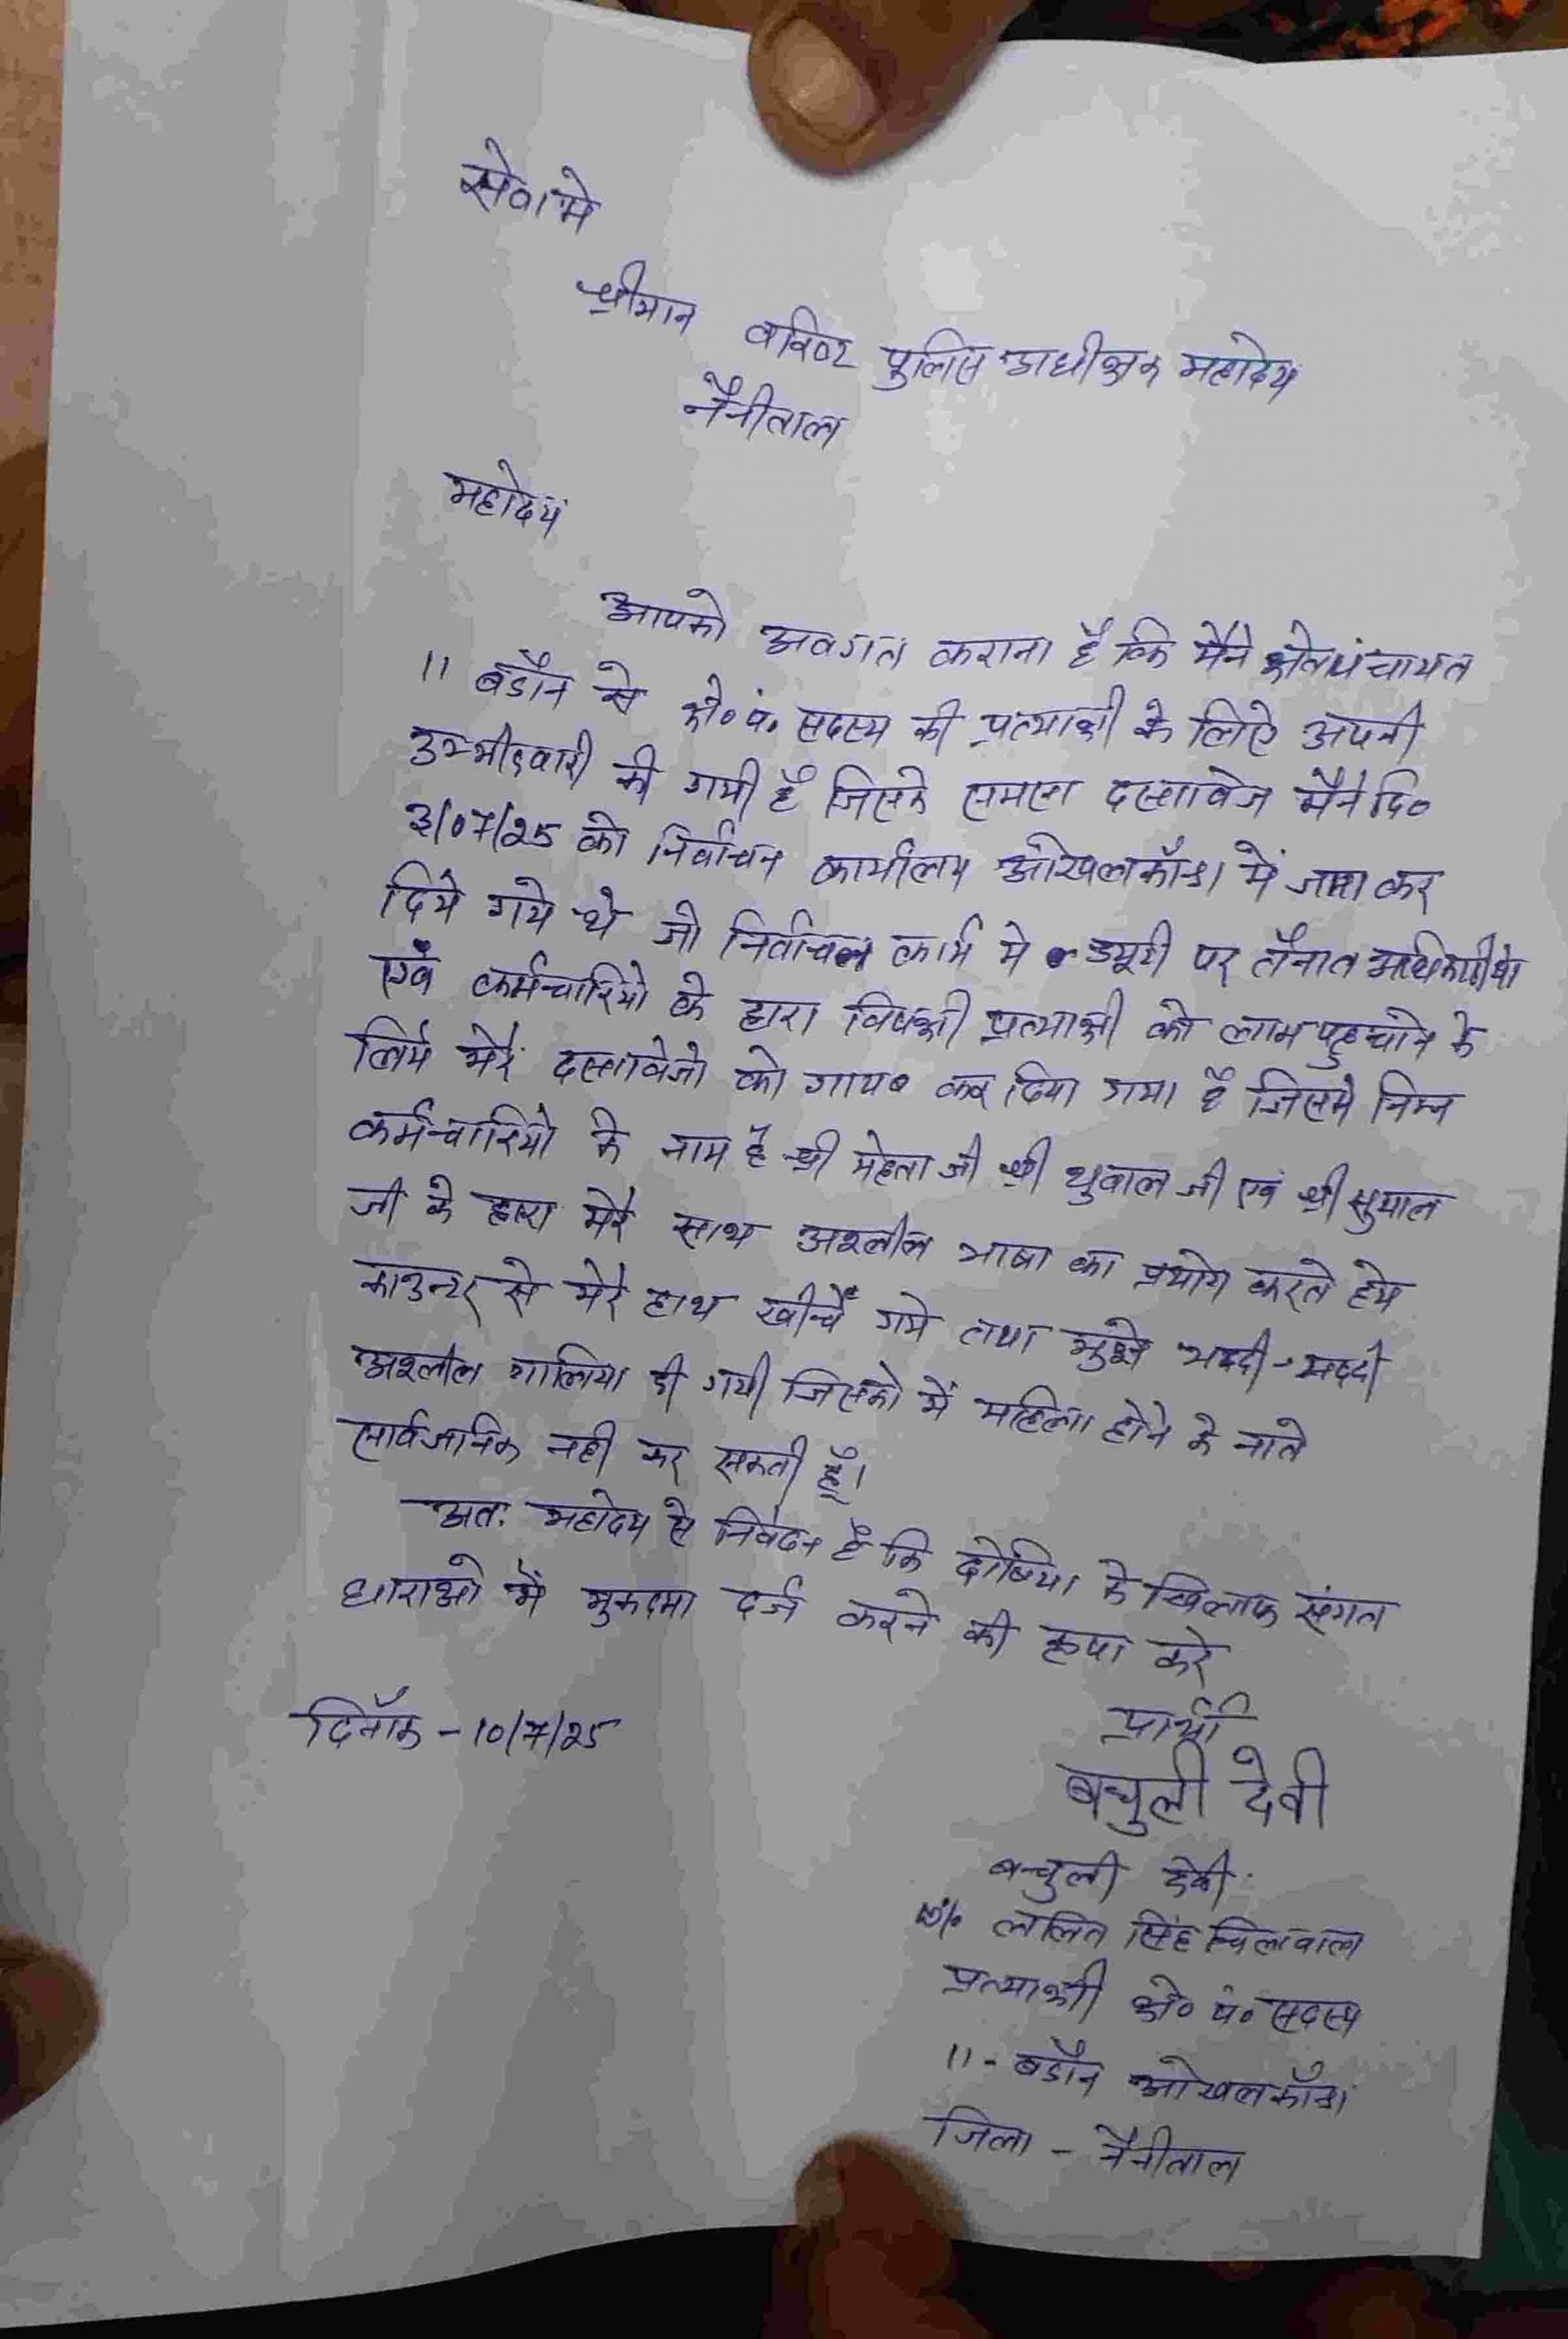 सेवामे
श्रीमान वरिष्ठ पुलिस अधीक्षक महोदय
नैनीताल
महोदय
आपको अवगत कराना है कि मैने क्षेत्र पंचायत
11 बडौन से क्षे० पं० सदस्य की प्रत्याशी के लिऐ अपनी
उम्मीदवारी की गयी है जिसके समस्त दस्तावेज मैने दि०
3/07/25 को निर्वाचन कार्यालय ओखलकाँडा में जमा कर
दिये गये थे जो निर्वाचन कार्य मे ड्यूटी पर तैनात अधिकारीयो
एवं कर्मचारियो के द्वारा विपक्षी प्रत्याशी को लाभ पहुचाने के
लिये मेरे दस्तावेजो को गायब कर दिया गया है जिसमे निम्न
कर्मचारियो के नाम है श्री मेहता जी श्री थुवाल जी एवं श्री सुयाल
जी के द्वारा मेरे साथ अश्लील भाषा का प्रयोग करते हुये
काउन्टर से मेरे हाथ खीचे गये तथा मुझे भद्दी-भद्दी
अश्लील गालिया दी गयी जिसको में महिला होने के नाते
सार्वजनिक नही कर सकती हूँ।
अतः महोदय से निवेदन है कि दोषियो के खिलाफ संगत
धाराओ में मुकदमा दर्ज करने की कृपा करे
दिनाँक - 10/7/25
प्रार्थी
बचुली देवी
बचुली देवी
ललित सिंह चिलवाल
प्रत्याशी क्षे० पं० सदस्य
11 - बडौन ओखलकाँडा
जिला - नैनीताल